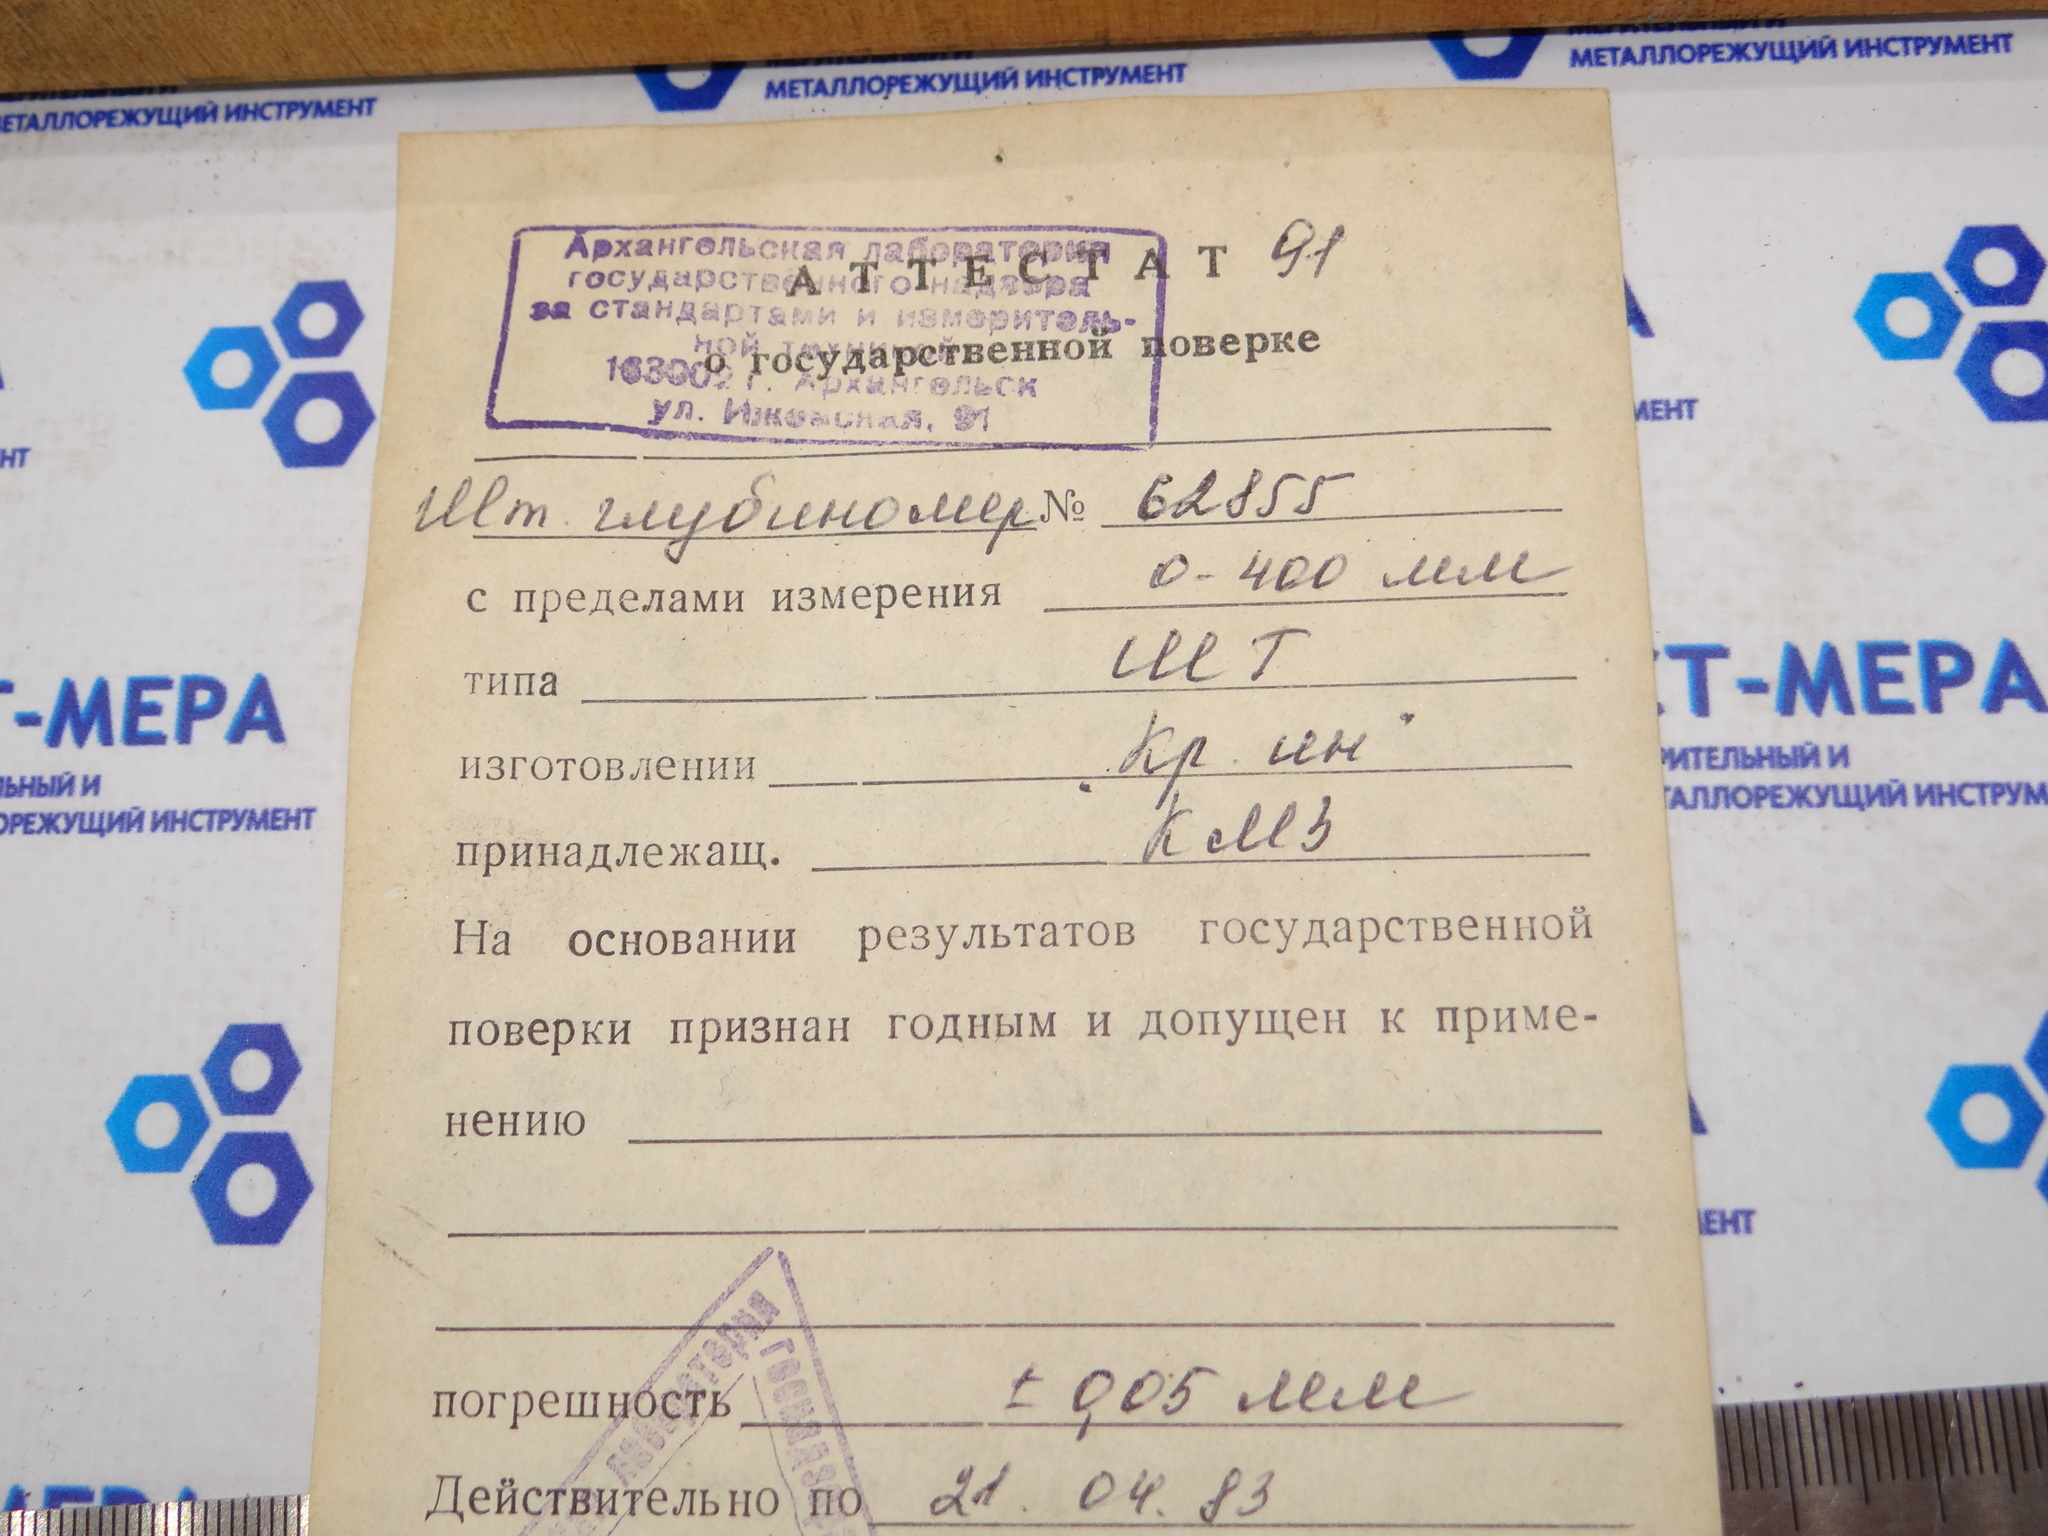 МЕТАЛЛОРЕЖУЩИЙ ИНСТРУМЕНТ
МЕТАЛЛОРЕЖУЩИЙ ИНСТРУМЕНТ
ЕТАЛЛОРЕЖУЩИЙ ИНСТРУМЕНТ
Архангельская лаборатория
государственного надзора
за стандартами и измеритель-
ной техникой
163002 г. Архангельск
ул. Ижевская, 91
АТТЕСТАТ 91
о государственной поверке
Шт. глубиномер № 62855
с пределами измерения 0-400 мм
типа ШТ
изготовлении Кр. ин
принадлежащ. КМЗ
На основании результатов государственной
поверки признан годным и допущен к приме-
нению
погрешность ± 0,05 мм
Действительно по 21. 04. 83
лаборатория
госнадз
Т-МЕРА
ЛЬНЫЙ И
ОРЕЖУЩИЙ ИНСТРУМЕНТ
СТ-МЕРА
РИТЕЛЬНЫЙ И
ТАЛЛОРЕЖУЩИЙ ИНСТРУМ